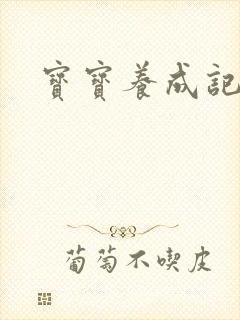 寶寶養成記
葡萄不喫皮